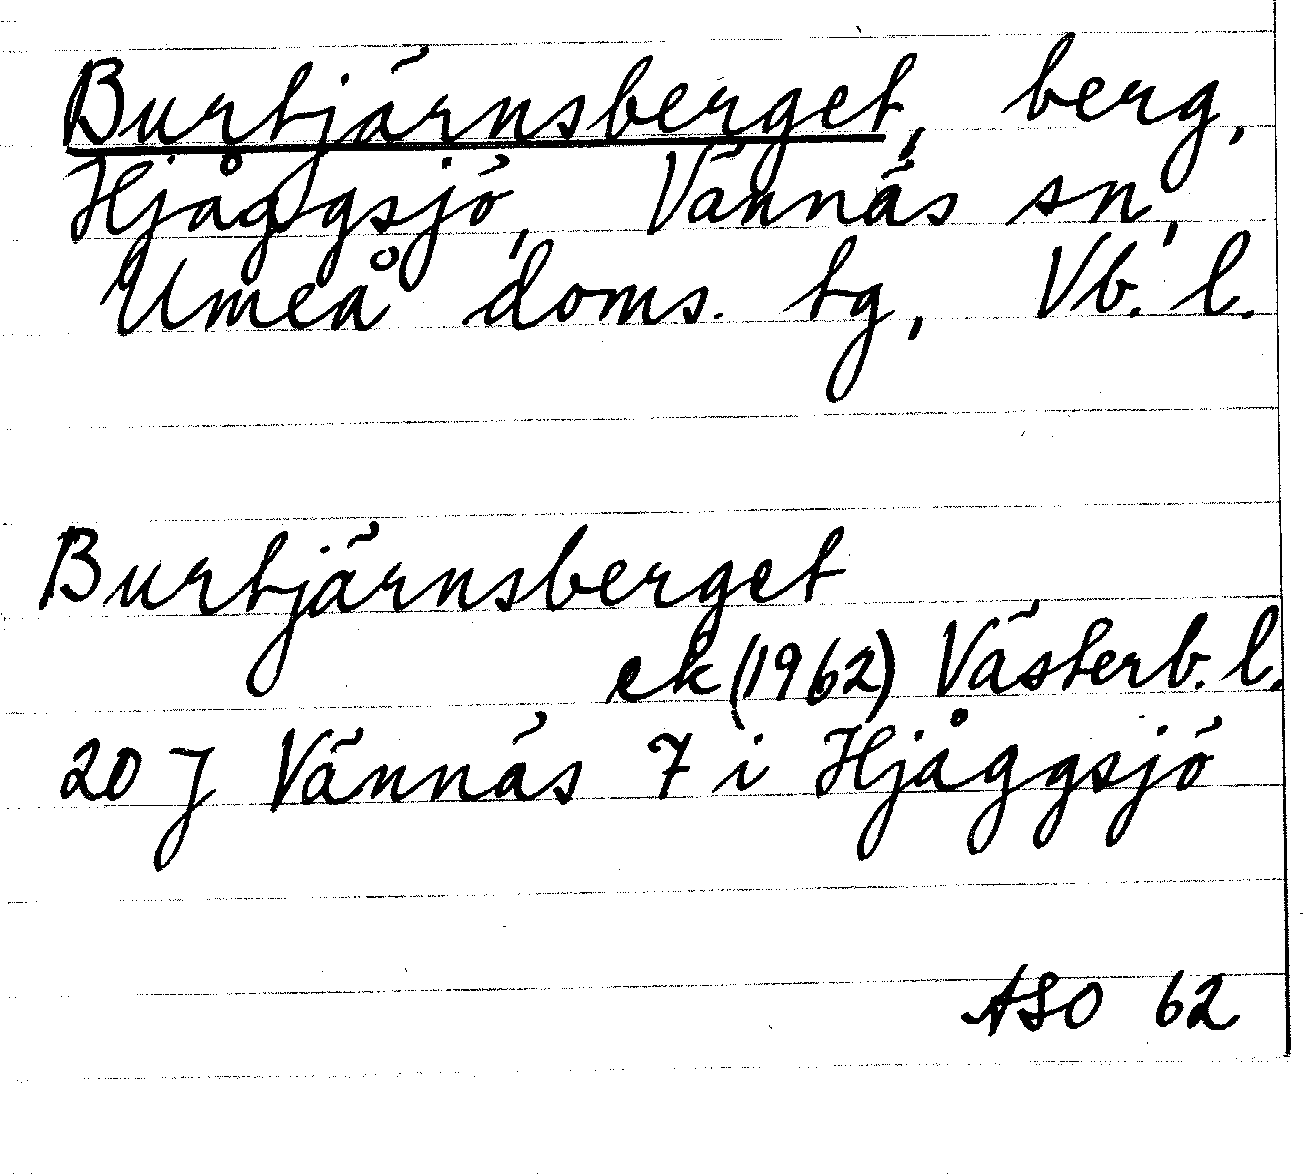 Burtjärnsberget, berg,
Hjåggsjö, Vännäs sn,
Umeå doms. tg, Vb. l.
Burtjärnsberget
ek (1962) Västerb. l.
20 J Vännäs 7 i Hjåggsjö
ASO 62